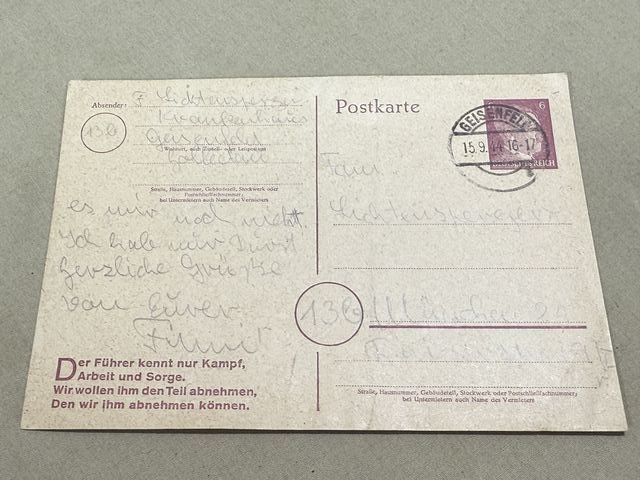 Absender:
Lichtensperger
Krankenhaus
Geisenfeld
Wohnort, auch Zustell- oder Leitpostamt
Hallertau
13b
Straße, Hausnummer, Gebäudeteil, Stockwerk oder
Postschließfachnummer;
bei Untermietern auch Name des Vermieters
es mir noch nicht.
Ich habe nur Durst
herzliche Grüße
von Eurer
Der Führer kennt nur Kampf,
Arbeit und Sorge.
Wir wollen ihm den Teil abnehmen,
Den wir ihm abnehmen können.
Postkarte
6
GEISENFELD
15.9.44.16-17
REICH
Lichtensperger
13b
München
Straße, Hausnummer, Gebäudeteil, Stockwerk oder Postschließfachnummer;
bei Untermietern auch Name des Vermieters